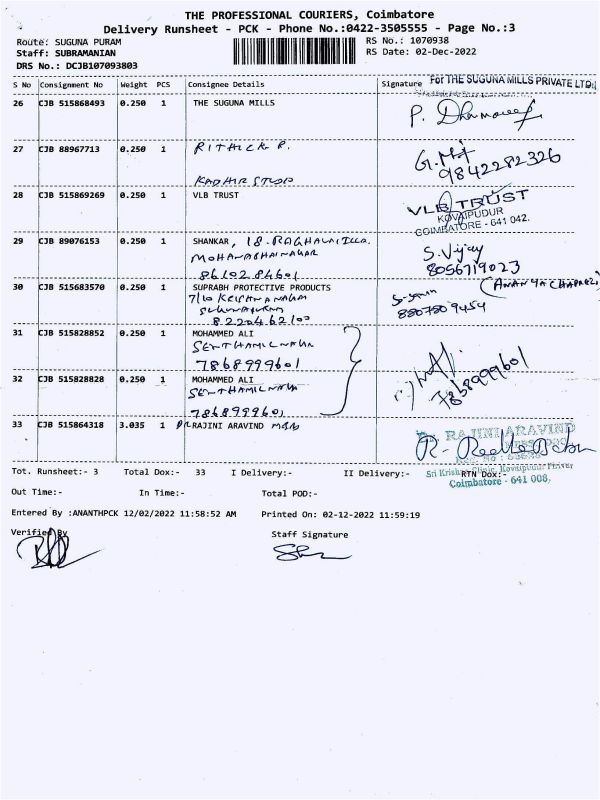 THE PROFESSIONAL COURIERS, Coimbatore
Delivery Runsheet - PCK - Phone No.:0422-3505555 - Page No.:3
Route: SUGUNA PURAM
RS No.: 1070938
Staff: SUBRAMANIAN
RS Date: 02-Dec-2022
DRS No.: DCJB107093803
S No Consignment No Weight PCS Consignee Details Signature
For THE SUGUNA MILLS PRIVATE LTD.,
26 CJB 515868493 0.250 1 THE SUGUNA MILLS
27 CJB 88967713 0.250 1 RITHICK P. G.
9842282326
KADHIR
28 CJB 515869269 0.250 1 VLB TRUST
VLB TRUST
KOVAIPUDUR
COIMBATORE - 641 042.
29 CJB 89076153 0.250 1 SHANKAR, 18.
S. Vijay
8056719023
8610284601
30 CJB 515683570 0.250 1 SUPRABH PROTECTIVE PRODUCTS
7/10
8807809454
8220462100
31 CJB 515828852 0.250 1 MOHAMMED ALI
SENTHAMIL NAGAR
7868999601
32 CJB 515828828 0.250 1 MOHAMMED ALI
SENTHAMIL NAGAR
7868999601
7868999601
33 CJB 515864318 3.035 1 DR RAJINI ARAVIND
RAJINI ARAVIND
Sri Krishna Clinic, Kovaipudur
Coimbatore - 641 008.
Tot. Runsheet:- 3 Total Dox:- 33 I Delivery:- II Delivery:- RTN Dox:-
Out Time:- In Time:- Total POD:-
Entered By :ANANTHPCK 12/02/2022 11:58:52 AM Printed On: 02-12-2022 11:59:19
Verified By
Staff Signature